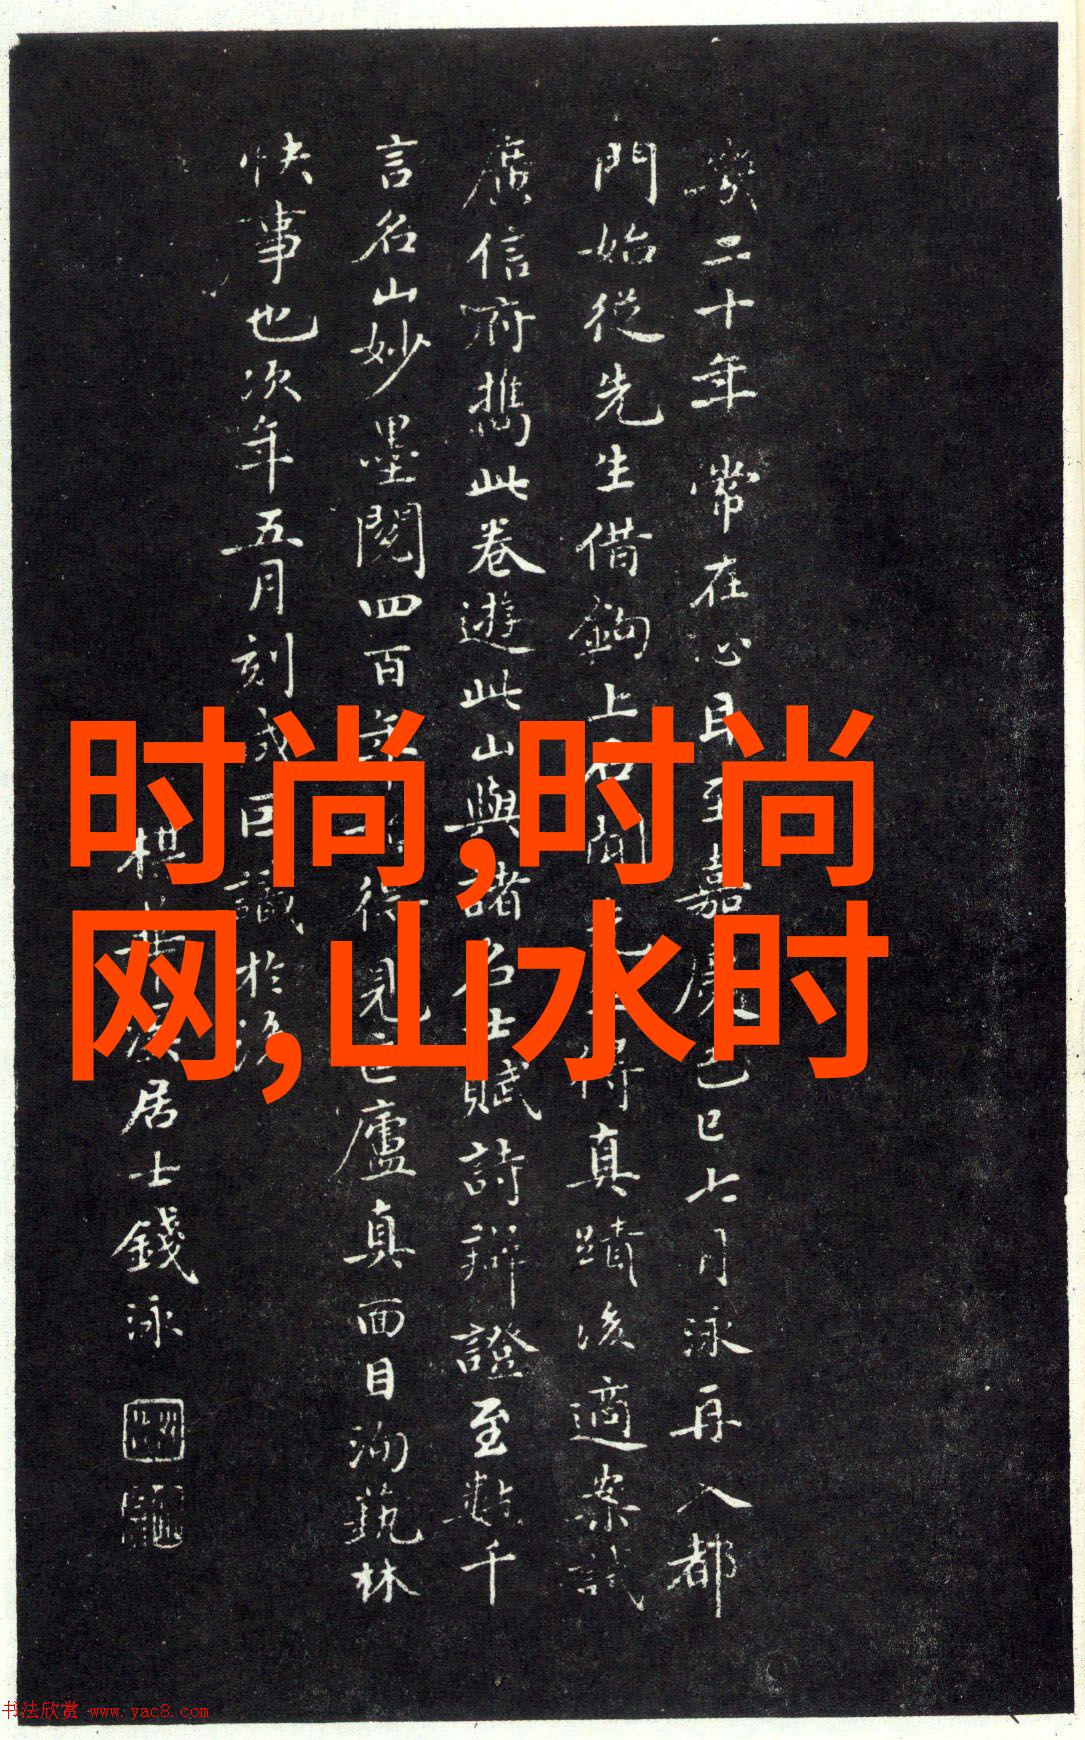 幾二十年常在心目至嘉慶己巳六月泳再入都
門始從先生借鉤上石
真蹟後適案試
廣信府攜此卷遊此山與諸名士賦詩辯證至數千
言名山妙墨閱四百年
得見匡廬真面目洵藝林
快事也次年五月刻成回識於後
梅華溪居士錢泳
时尚,时尚
网,山水时
书法欣赏 www.yac8.com